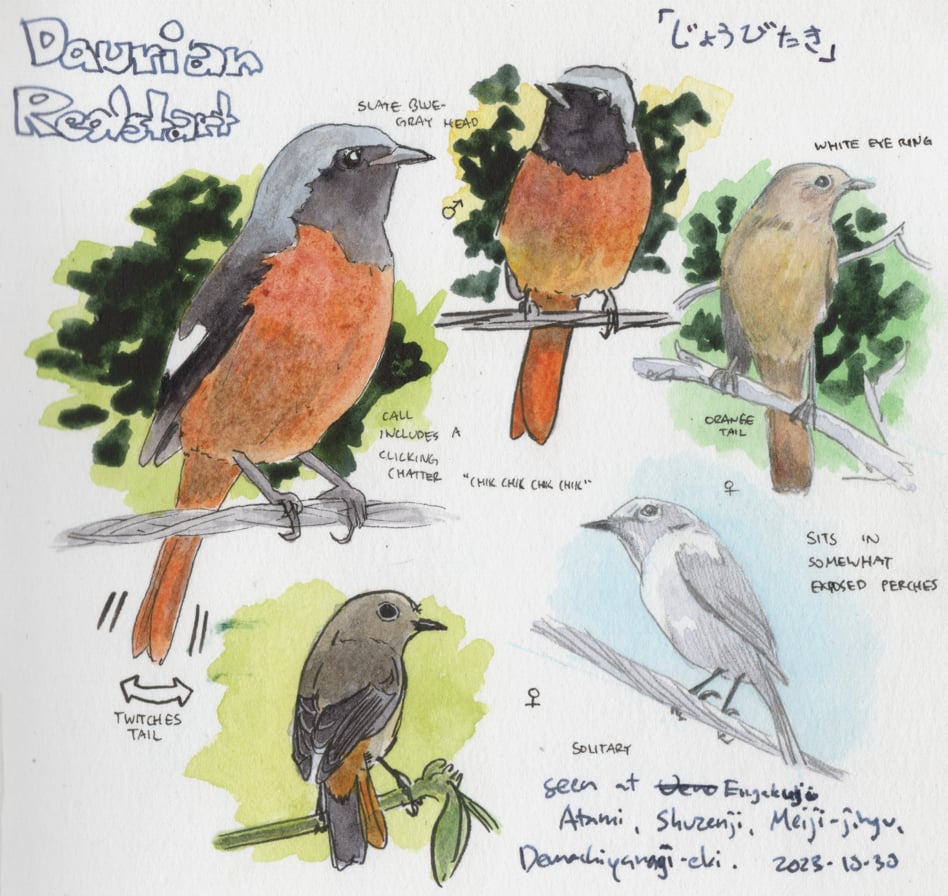 Daurian
Redstart
「じょうびたき」
SLATE BLUE-
GRAY HEAD
♂
WHITE EYE RING
CALL
INCLUDES A
CLICKING
CHATTER "CHIK CHIK CHIK CHIK"
ORANGE
TAIL
♀
SITS IN
SOMEWHAT
EXPOSED PERCHES
TWITCHES
TAIL
♀
SOLITARY
seen at Ueno Engakuji
Atami, Shuzenji, Meiji-jingu,
Demachiyanagi-eki. 2023-10-30